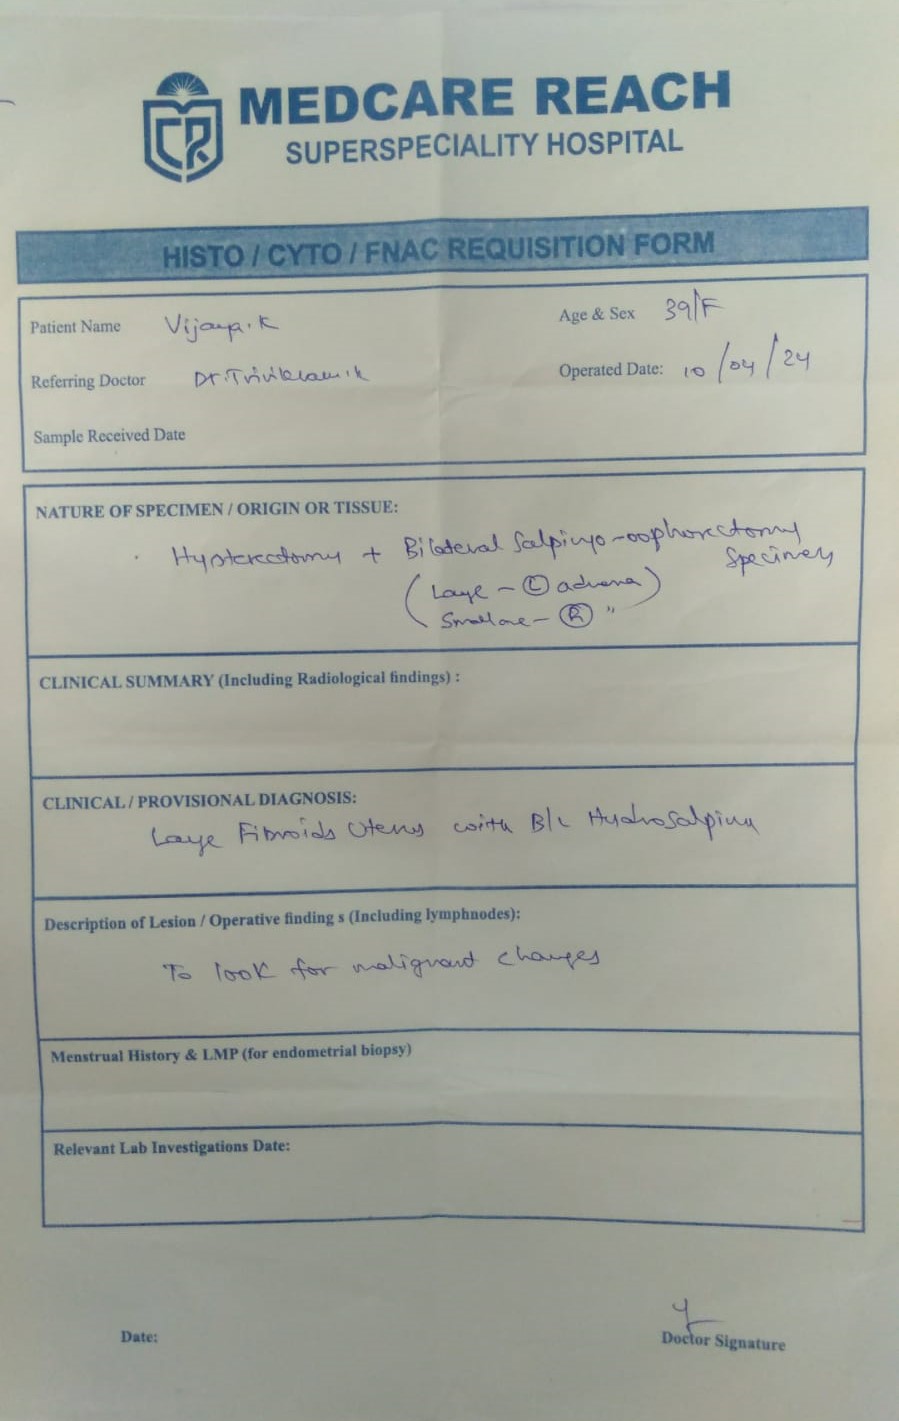 CR
MEDCARE REACH
SUPERSPECIALITY HOSPITAL
HISTO / CYTO / FNAC REQUISITION FORM
Patient Name Vijaya.K Age & Sex 39/F
Referring Doctor Dr. Trivikram.K Operated Date: 10/04/24
Sample Received Date
NATURE OF SPECIMEN / ORIGIN OR TISSUE:
Hysterectomy + Bilateral Salpingo-oophorectomy
Specimens
(Large - L adnexa)
Small one - R "
CLINICAL SUMMARY (Including Radiological findings) :
CLINICAL / PROVISIONAL DIAGNOSIS:
Large Fibroids Uterus with B/L Hydrosalpinx
Description of Lesion / Operative finding s (Including lymphnodes):
To look for malignant changes
Menstrual History & LMP (for endometrial biopsy)
Relevant Lab Investigations Date:
Date: Doctor Signature